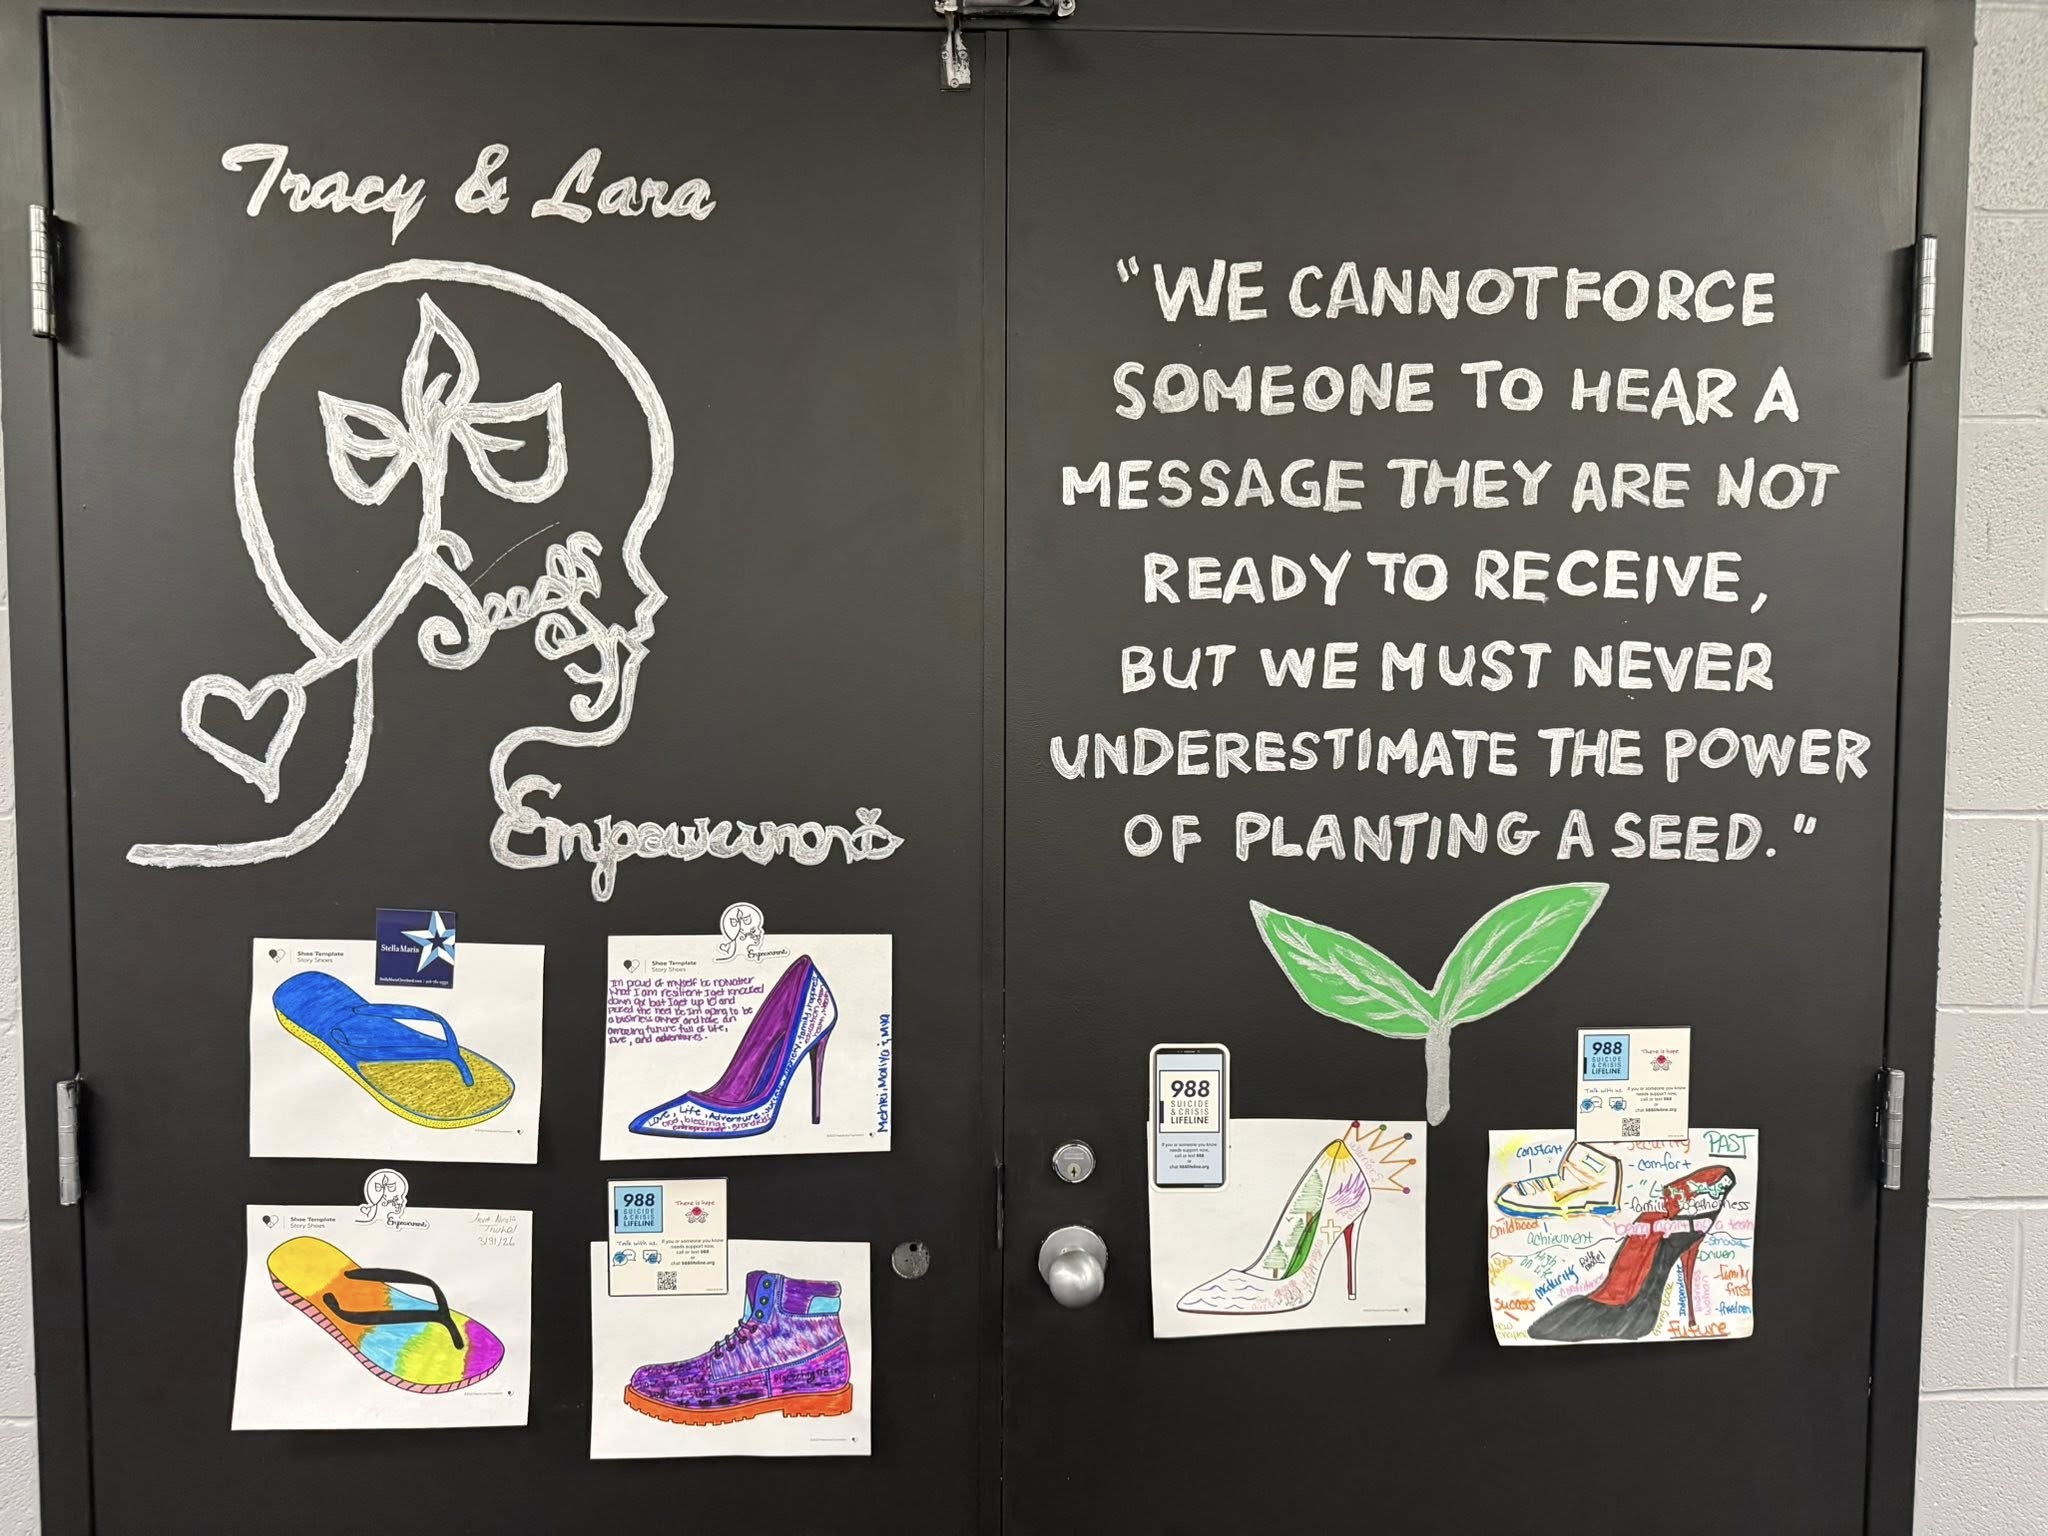 Tracy & Lara
Seeds of
Empowerment
"WE CANNOT FORCE
SOMEONE TO HEAR A
MESSAGE THEY ARE NOT
READY TO RECEIVE,
BUT WE MUST NEVER
UNDERESTIMATE THE POWER
OF PLANTING A SEED."
Stella Maris
Shoe Template
Story Shoes
Shoe Template
Story Shoes
Empowerment
I'm proud of myself bc no matter
what I am resilient I get knocked
down 9x but I get up 10 and
I'm going to be
a business owner and have an
amazing future full of life,
love, and adventures.
Love, Life, Adventure
God, blessings, grandkids
entrepreneur
Shoe Template
Story Shoes
Empowerment
3/31/26
988
SUICIDE
& CRISIS
LIFELINE
There is hope
Talk with us.
If you or someone you know
needs support now,
call or text 988
or
chat 988lifeline.org
988
SUICIDE
& CRISIS
LIFELINE
If you or someone you know
needs support now,
call or text 988
or
chat 988lifeline.org
988
SUICIDE
& CRISIS
LIFELINE
There is hope
Talk with us.
If you or someone you know
needs support now,
call or text 988
or
chat 988lifeline.org
constant
security
PAST
- comfort
Childhood
achievment
being apart of a team
Driven
maturity
Independent
- family
first
Success
- freedom
Future